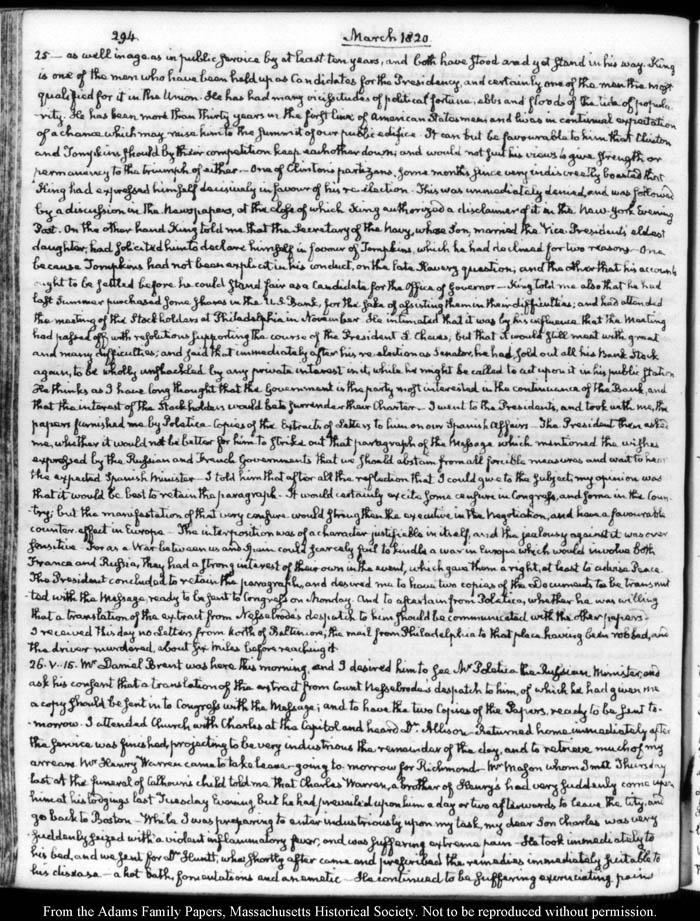 294. March 1820.
25 — as well in age as in public service by at least ten years, and both have stood and yet stand in his way. King
is one of the men who have been held up as Candidates for the Presidency, and certainly one of the men the most
qualified for it in this Union. He has had many vicissitudes of political fortune, ebbs and floods of the tide of popula-
rity. He has been more than thirty years in the first line of American Statesmen and lives in continual expectation
of a chance which may raise him to the summit of our public edifice. It can but be favourable to him that Clinton
and Tompkins should by their competition keep each other down; and would not suit his views to give strength, or
permanency to the triumph of either — One of Clinton's partizans, some months since very indiscreetly boasted that
King had expressed himself decisively in favour of his re-election. This was immediately denied, and was followed
by a discussion in the Newspapers, at the close of which King authorized a disclaimer of it in the New-York Evening
Post. On the other hand King told me that the Secretary of the Navy, whose Son, married the Vice-President's eldest
daughter, had solicited him to declare himself in favour of Tompkins, which he had declined for two reasons — One
because Tompkins had not been explicit in his conduct, on the late Slavery question; and the other that his accounts
ought to be settled before he could stand fair as a Candidate for the Office of Governor — King told me also that he had
last Summer purchased some shares in the U.S. Bank, for the sake of assisting them in their difficulties; and had attended
the meeting of the Stockholders at Philadelphia in November. He intimated that it was by his influence, that the Meeting
had passed off with resolutions supporting the course of the President L. Cheves, but that it would still meet with great
and many difficulties; and said that immediately after his re-election as Senator, he had sold out all his Bank Stock
again, to be wholly unshackled by any private interest in it, while he might be called to act upon it in his public Station
He thinks as I have long thought that the Government is the party most interested in the continuance of the Bank, and
that the interest of the Stockholders would be to surrender their Charter — I went to the President's, and took with me, the
papers furnished me by Poletica. Copies of the Extracts of Letters to him on our Spanish Affairs. The President then asked
me, whether it would not be better for him to strike out that paragraph of the Message which mentioned the wishes
expressed by the Russian and French Governments that we should abstain from all forcible measures and wait to hear
the expected Spanish Minister — I told him that after all the reflection that I could give to the subject, my opinion was
that it would be best to retain the paragraph. It would certainly excite some censure in Congress, and some in the Coun-
try; but the manifestation of that very censure would strengthen the executive in the Negotiation, and have a favourable
counter-effect in Europe — The interposition was of a character justifiable in itself, and the jealousy against it was over
sensitive. For as a War between us and Spain could scarcely fail to kindle a war in Europe which would involve both
France and Russia, they had a strong interest of their own in the event, which gave them a right, at least to advise Peace.
The President concluded to retain the paragraph, and desired me to have two copies of the Documents to be transmit-
ted with the Message, ready to be sent to Congress on Monday. And to ascertain from Poletica, whether he was willing
that a translation of the extract from Nesselrode's despatch to him should be communicated with the other papers —
I received this day no Letters from North of Baltimore, the mail from Philadelphia to that place having been robbed, and
the driver murdered, about six miles before reaching it.
26. V. 15. Mr Daniel Brent was here this morning and I desired him to see Mr Poletica the Russian Minister, and
ask his consent that a translation of the extract from Count Nesselrode's despatch to him, of which he had given me
a copy should be sent in to Congress with the Message; and to have the two Copies of the Papers, ready to be sent to-
morrow. I attended Church with Charles at the Capitol and heard Dr. Allison — Returned home immediately after
the service was finished, projecting to be very industrious the remainder of the day, and to retrieve much of my
arrears. Mr Henry Warren came to take leave going to morrow for Richmond — Mr Mason whom I met Thursday
last at the funeral of Calhoun's child told me that Charles Warren, a brother of Henry's had very suddenly come upon
him at his lodgings last Tuesday Evening but he had prevailed upon him a day or two afterwards to leave the City, and
go back to Boston — While I was preparing to enter industriously upon my task, my dear Son Charles was very
suddenly seized with a violent inflammatory fever, and was suffering extreme pain — He took immediately to
his bed, and we sent for Dr Huntt, who shortly after came and prescribed the remedies immediately suitable to
his disease — a hot bath, fomentations and an emetic — He continued to be suffering excruciating pain
From the Adams Family Papers, Massachusetts Historical Society. Not to be reproduced without permission.